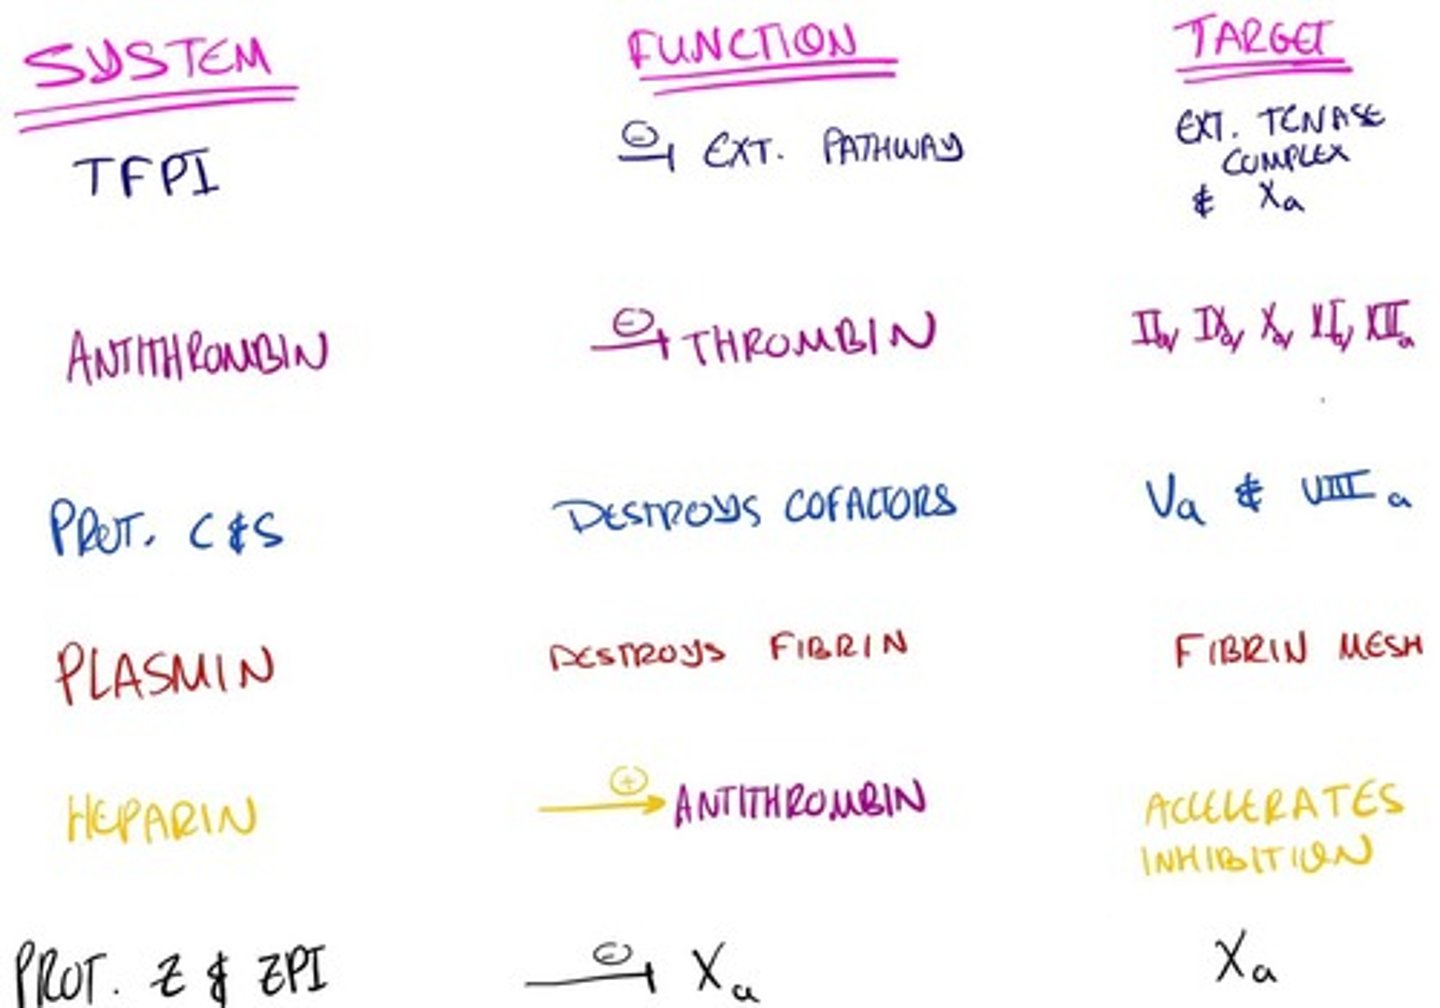 SYSTEM FUNCTION TARGET
TFPI ⊖ EXT. PATHWAY EXT. TENASE
COMPLEX
& Xa
ANTITHROMBIN ⊖ THROMBIN IIa, IXa, Xa, XIa, XIIa
PROT. C & S DESTROYS COFACTORS Va & VIIIa
PLASMIN DESTROYS FIBRIN FIBRIN MESH
HEPARIN ⊕ ANTITHROMBIN ACCELERATES
INHIBITION
PROT. Z & ZPI ⊖ Xa Xa